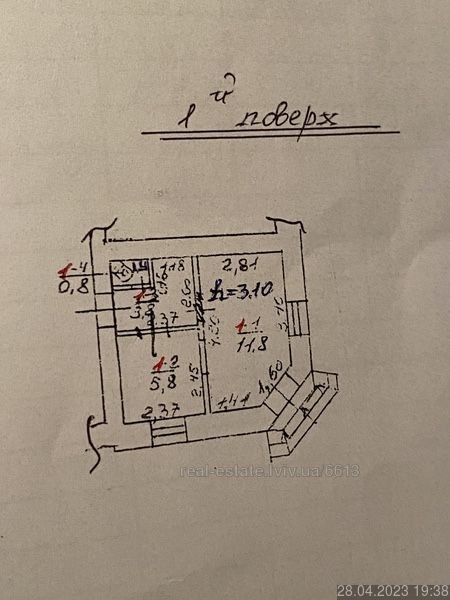 1й поверх
1-4
0,8
1,18
2,81
h=3.10
3,8
2,37
2.00
4.20
3,40
1-1
11,8
1-2
5,8
2.45
1,50
2,37
1,41
real-estate.lviv.ua/6613
28.04.2023 19:38